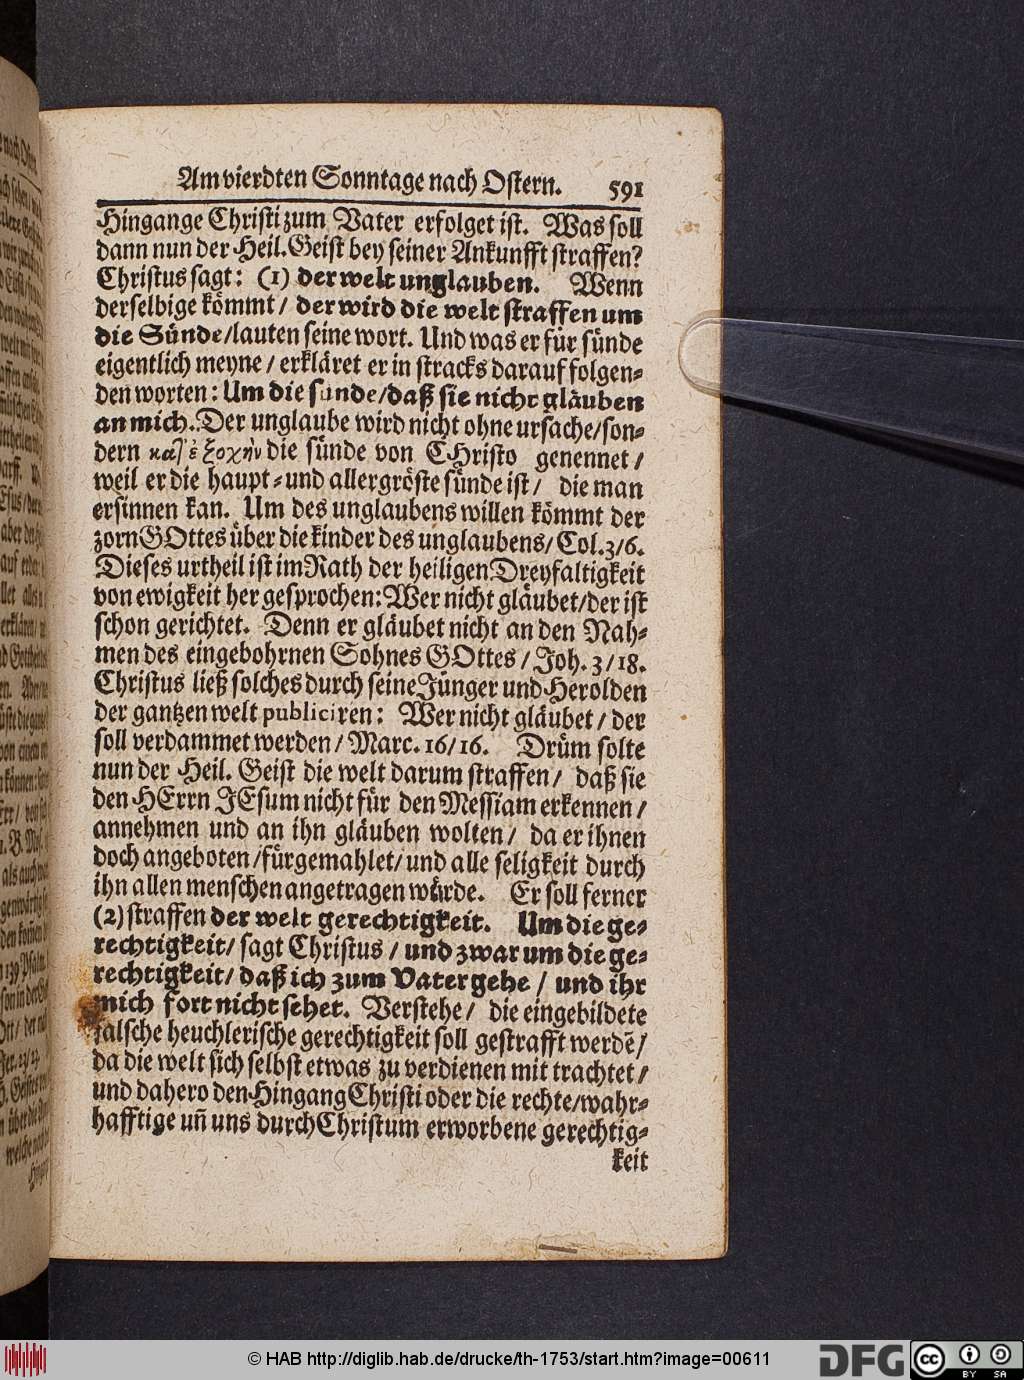 Am vierdten Sonntage nach Ostern. 591
Hingange Christi zum Vater erfolget ist. Was soll
dann nun der Heil. Geist bey seiner Ankunfft straffen?
Christus sagt: (1) der welt unglauben. Wenn
derselbige kömmt / der wird die welt straffen um
die Sünde / lauten seine wort. Und was er für sünde
eigentlich meyne / erkläret er in stracks darauf folgen-
den worten: Um die sünde / daß sie nicht gläuben
an mich. Der unglaube wird nicht ohne ursache / son-
dern κατ' ἐξοχὴν die sünde von CHristo genennet /
weil er die haupt- und allergröste sünde ist / die man
ersinnen kan. Um des unglaubens willen kömmt der
zorn GOttes über die kinder des unglaubens / Col. 3/6.
Dieses urtheil ist im Rath der heiligen Dreyfaltigkeit
von ewigkeit her gesprochen: Wer nicht gläubet / der ist
schon gerichtet. Denn er gläubet nicht an den Nah-
men des eingebohrnen Sohnes GOttes / Joh. 3/18.
Christus ließ solches durch seine Jünger und Herolden
der gantzen welt publiciren: Wer nicht gläubet / der
soll verdammet werden / Marc. 16/16. Drüm solte
nun der Heil. Geist die welt darum straffen / daß sie
den HErrn JEsum nicht für den Messiam erkennen /
annehmen und an ihn gläuben wolten / da er ihnen
doch angeboten / fürgemahlet / und alle seligkeit durch
ihn allen menschen angetragen würde. Er soll ferner
(2) straffen der welt gerechtigkeit. Um die ge-
rechtigkeit / sagt Christus / und zwar um die ge-
rechtigkeit / daß ich zum Vater gehe / und ihr
mich fort nicht sehet. Verstehe / die eingebildete
falsche heuchlerische gerechtigkeit soll gestrafft werdē /
da die welt sich selbst etwas zu verdienen mit trachtet /
und dahero den Hingang Christi oder die rechte / wahr-
hafftige uñ uns durch Christum erworbene gerechtig-
keit
© HAB http://diglib.hab.de/drucke/th-1753/start.htm?image=00611
DFG
cc BY SA